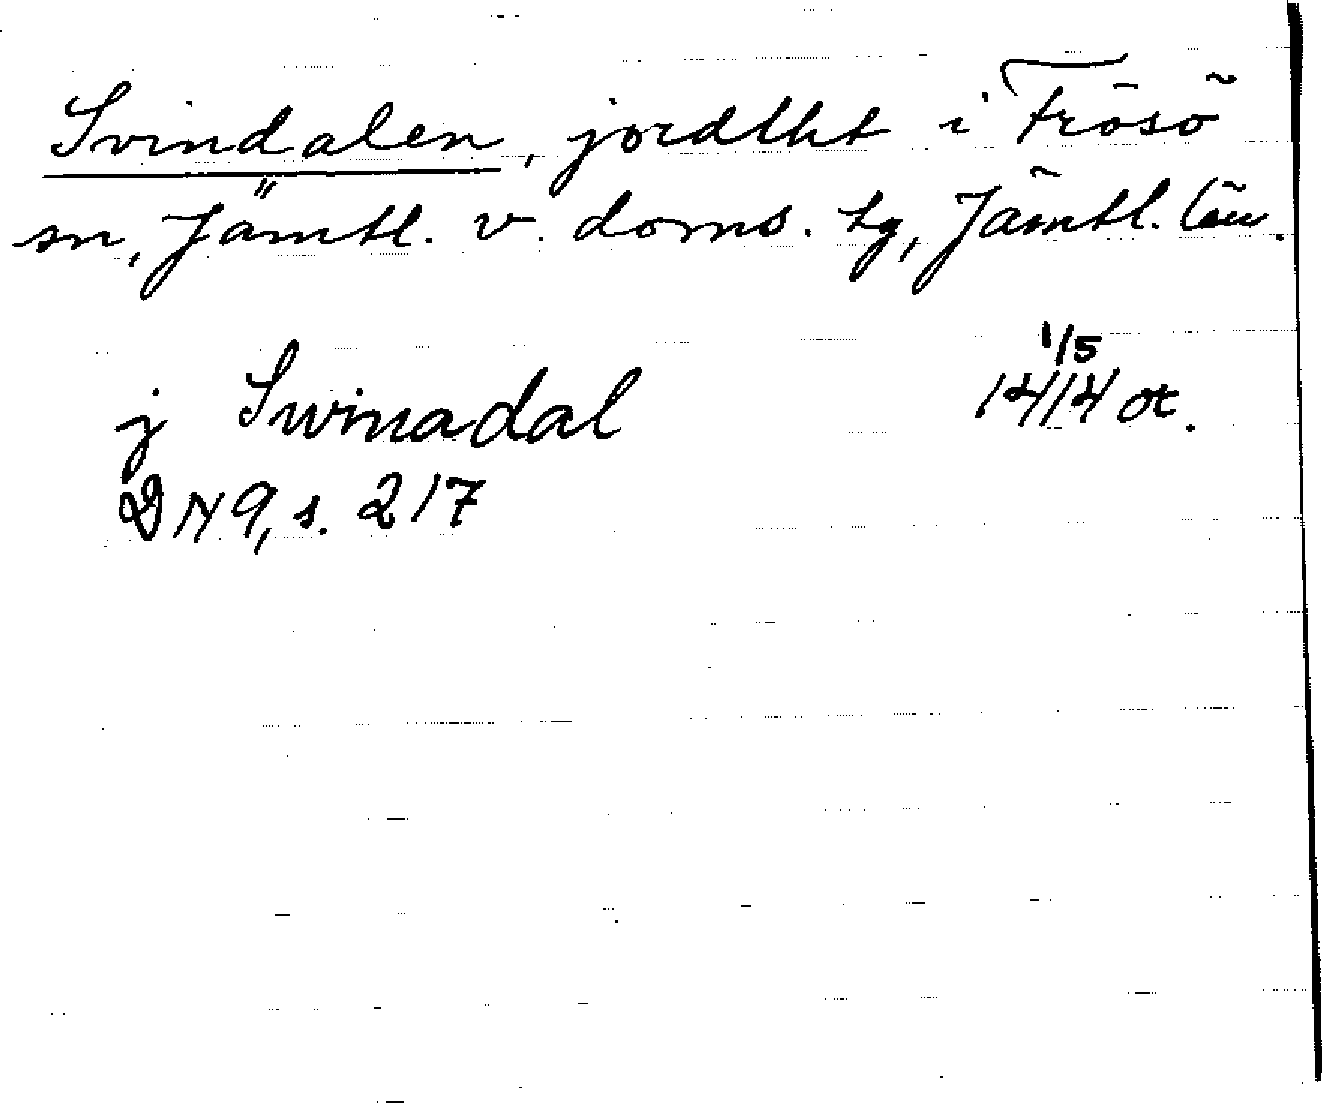 Svindalen, jordlht i Frösö
sn, Jämtl. v. doms. tg, Jämtl. län.
j Swinadal 1/5 1414 or.
DN 9, s. 217